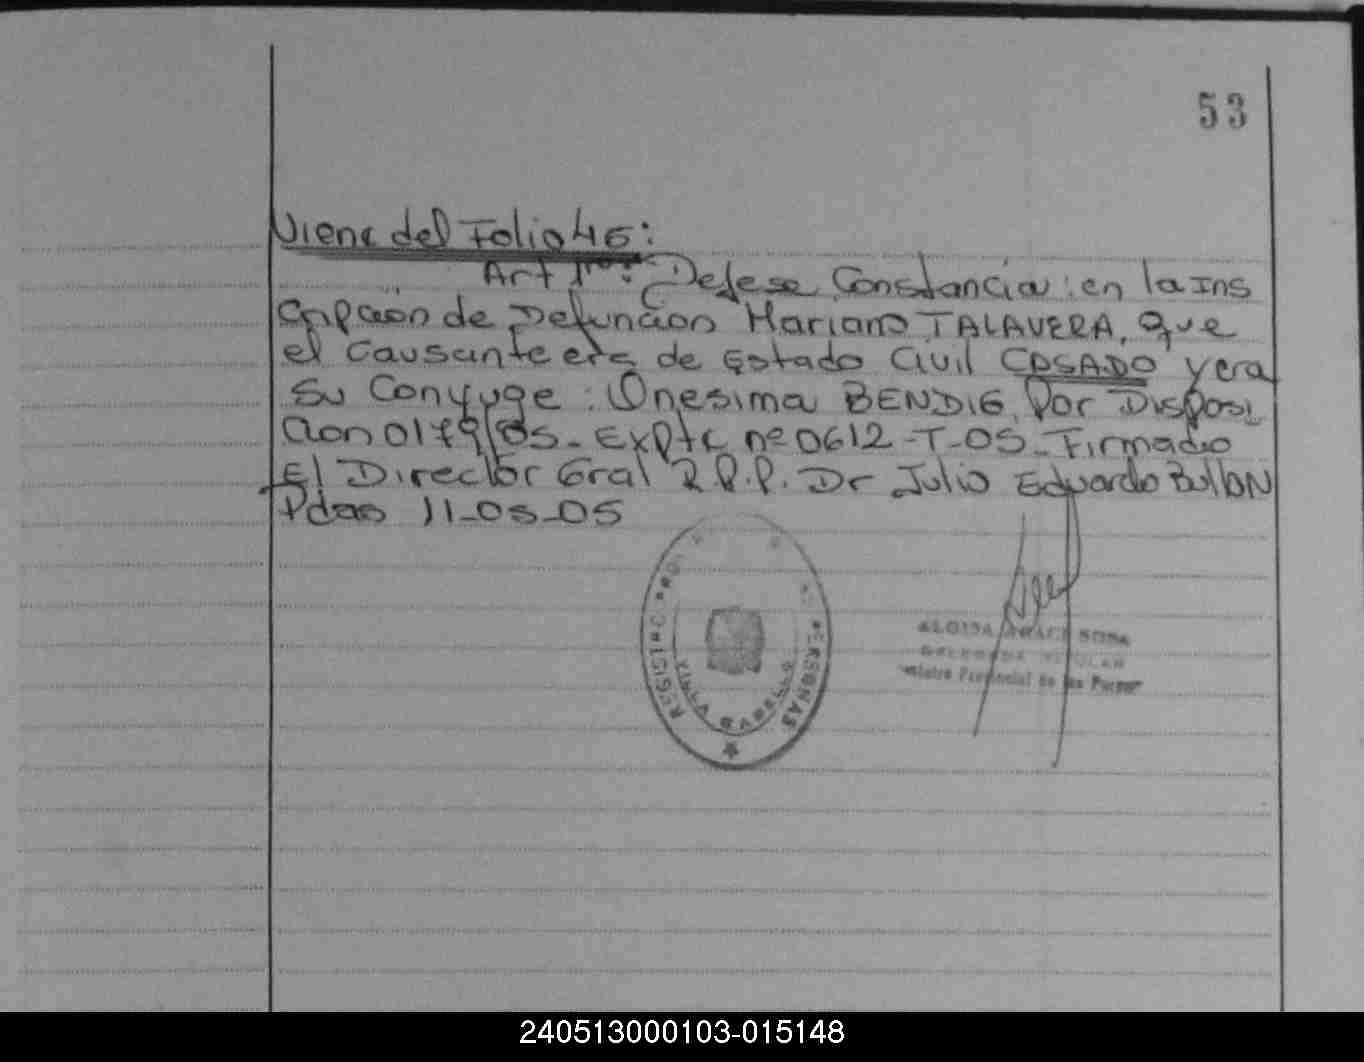 53
Viene del Folio 46:
Art 1ro: Dejese Constancia: en la Ins
cripción de Defunción Mariano TALAVERA, que
el Causante era de Estado Civil CASADO y era
su Conyuge: Onesima BENDIG, Por Disposi
cion 0179/05- Expte nº 0612-T-05- Firmado
El Director Gral R.P.P. Dr Julio Eduardo Bullon
Pdas 11-05-05
REGISTRO PROV PERSONAS
VILLA SABELLO
SOSA